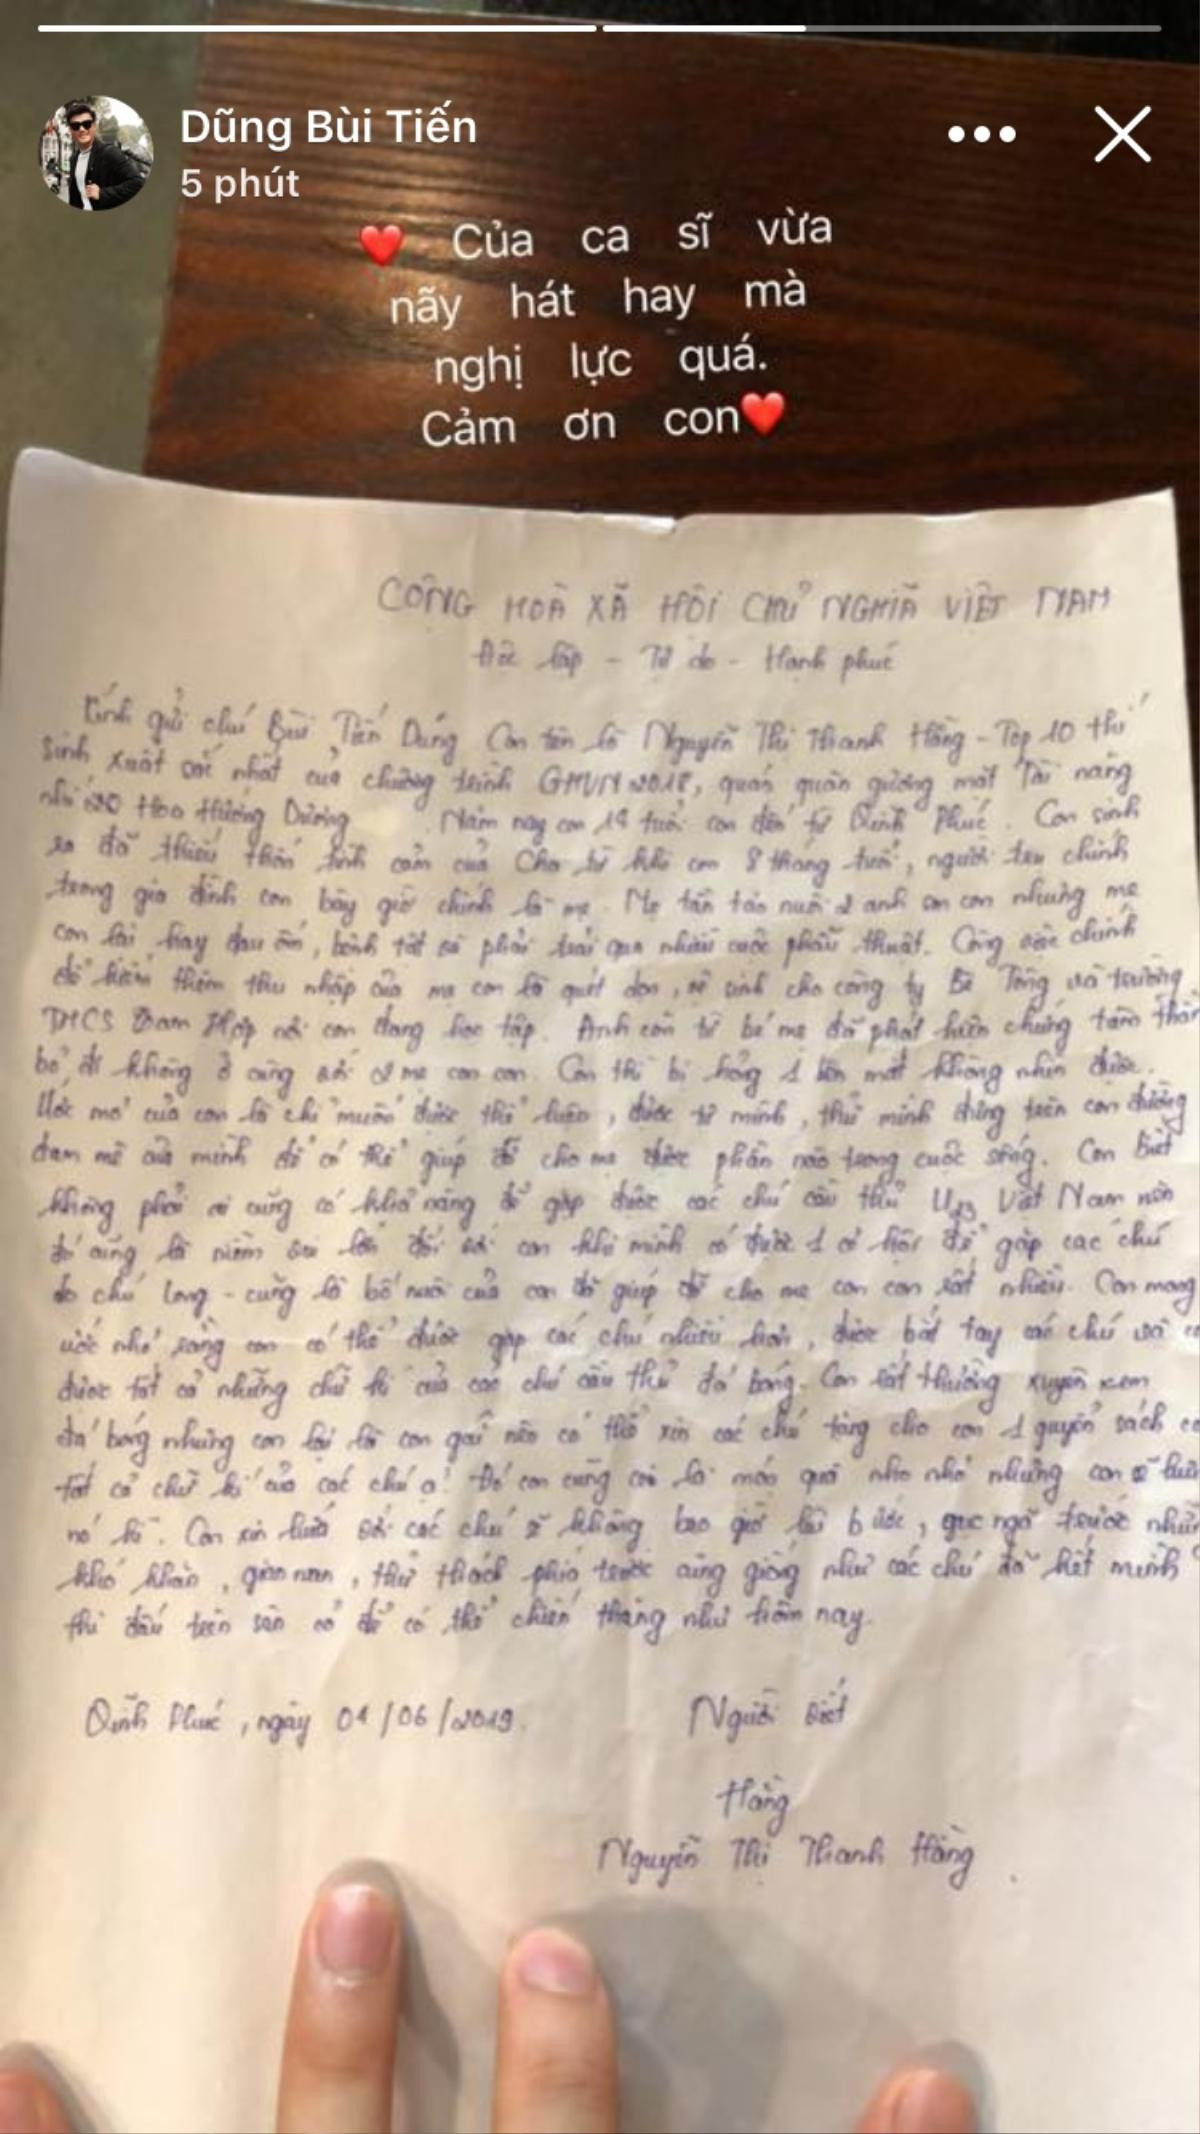 Dũng Bùi Tiến
5 phút
❤️ Của ca sĩ vừa
nãy hát hay mà
nghị lực quá.
Cảm ơn con❤️
CỘNG HOÀ XÃ HỘI CHỦ NGHĨA VIỆT NAM
Độc lập - Tự do - Hạnh phúc
Kính gửi chú Bùi Tiến Dũng Con tên là Nguyễn Thị Thanh Hằng - Top 10 thí
sinh xuất sắc nhất của chương trình GHVN 2018, quán quân gương mặt Tài năng
nhí Hoa Hướng Dương. Năm nay con 14 tuổi con đến từ Phúc. Con sinh
ra đã thiếu thốn tình cảm của Cha từ khi con 8 tháng tuổi, người trụ chính
trong gia đình con bây giờ chính là mẹ. Mẹ tần tảo nuôi 2 anh em con nhưng mẹ
con lại hay đau ốm, bệnh tật và phải trải qua nhiều cuộc phẫu thuật. Công việc chính
để kiếm thêm thu nhập của mẹ con là quét dọn, vệ sinh cho công ty Bê Tông và trường
THCS Hợp nơi con đang học tập. Anh con từ bé mẹ đã phát hiện chứng tâm thần
bỏ đi không ở cùng với 2 mẹ con con. Con thì bị hỏng 1 bên mắt không nhìn được.
Ước mơ của con là chỉ muốn được thể hiện, được tự mình, thử mình đứng trên con đường
đam mê của mình để có thể giúp đỡ cho mẹ được phần nào trong cuộc sống. Con biết
không phải ai cũng có khả năng để gặp được các chú cầu thủ U23 Việt Nam nên
đó cũng là niềm vui lớn đối với con khi mình có được 1 cơ hội để gặp các chú
do chú Long - cũng là bố nuôi của con đã giúp đỡ cho mẹ con con rất nhiều. Con mong
ước nhỏ rằng con có thể được gặp các chú nhiều hơn, được bắt tay các chú và
được tất cả những chữ kí của các chú cầu thủ đá bóng. Con rất thường xuyên xem
đá bóng nhưng con lại là con gái nên có thể xin các chú tặng cho con 1 quyển sách
tất cả chữ kí của các chú ạ! Đó con cũng coi là món quà nho nhỏ nhưng con sẽ
nó. Con xin hứa với các chú sẽ không bao giờ lùi bước, gục ngã trước
khó khăn, gian nan, thử thách phía trước cũng giống như các chú đã hết mình
thi đấu trên sân cỏ để có thể chiến thắng như hôm nay.
Phúc, ngày 04/06/2019. Người viết
Hằng
Nguyễn Thị Thanh Hằng